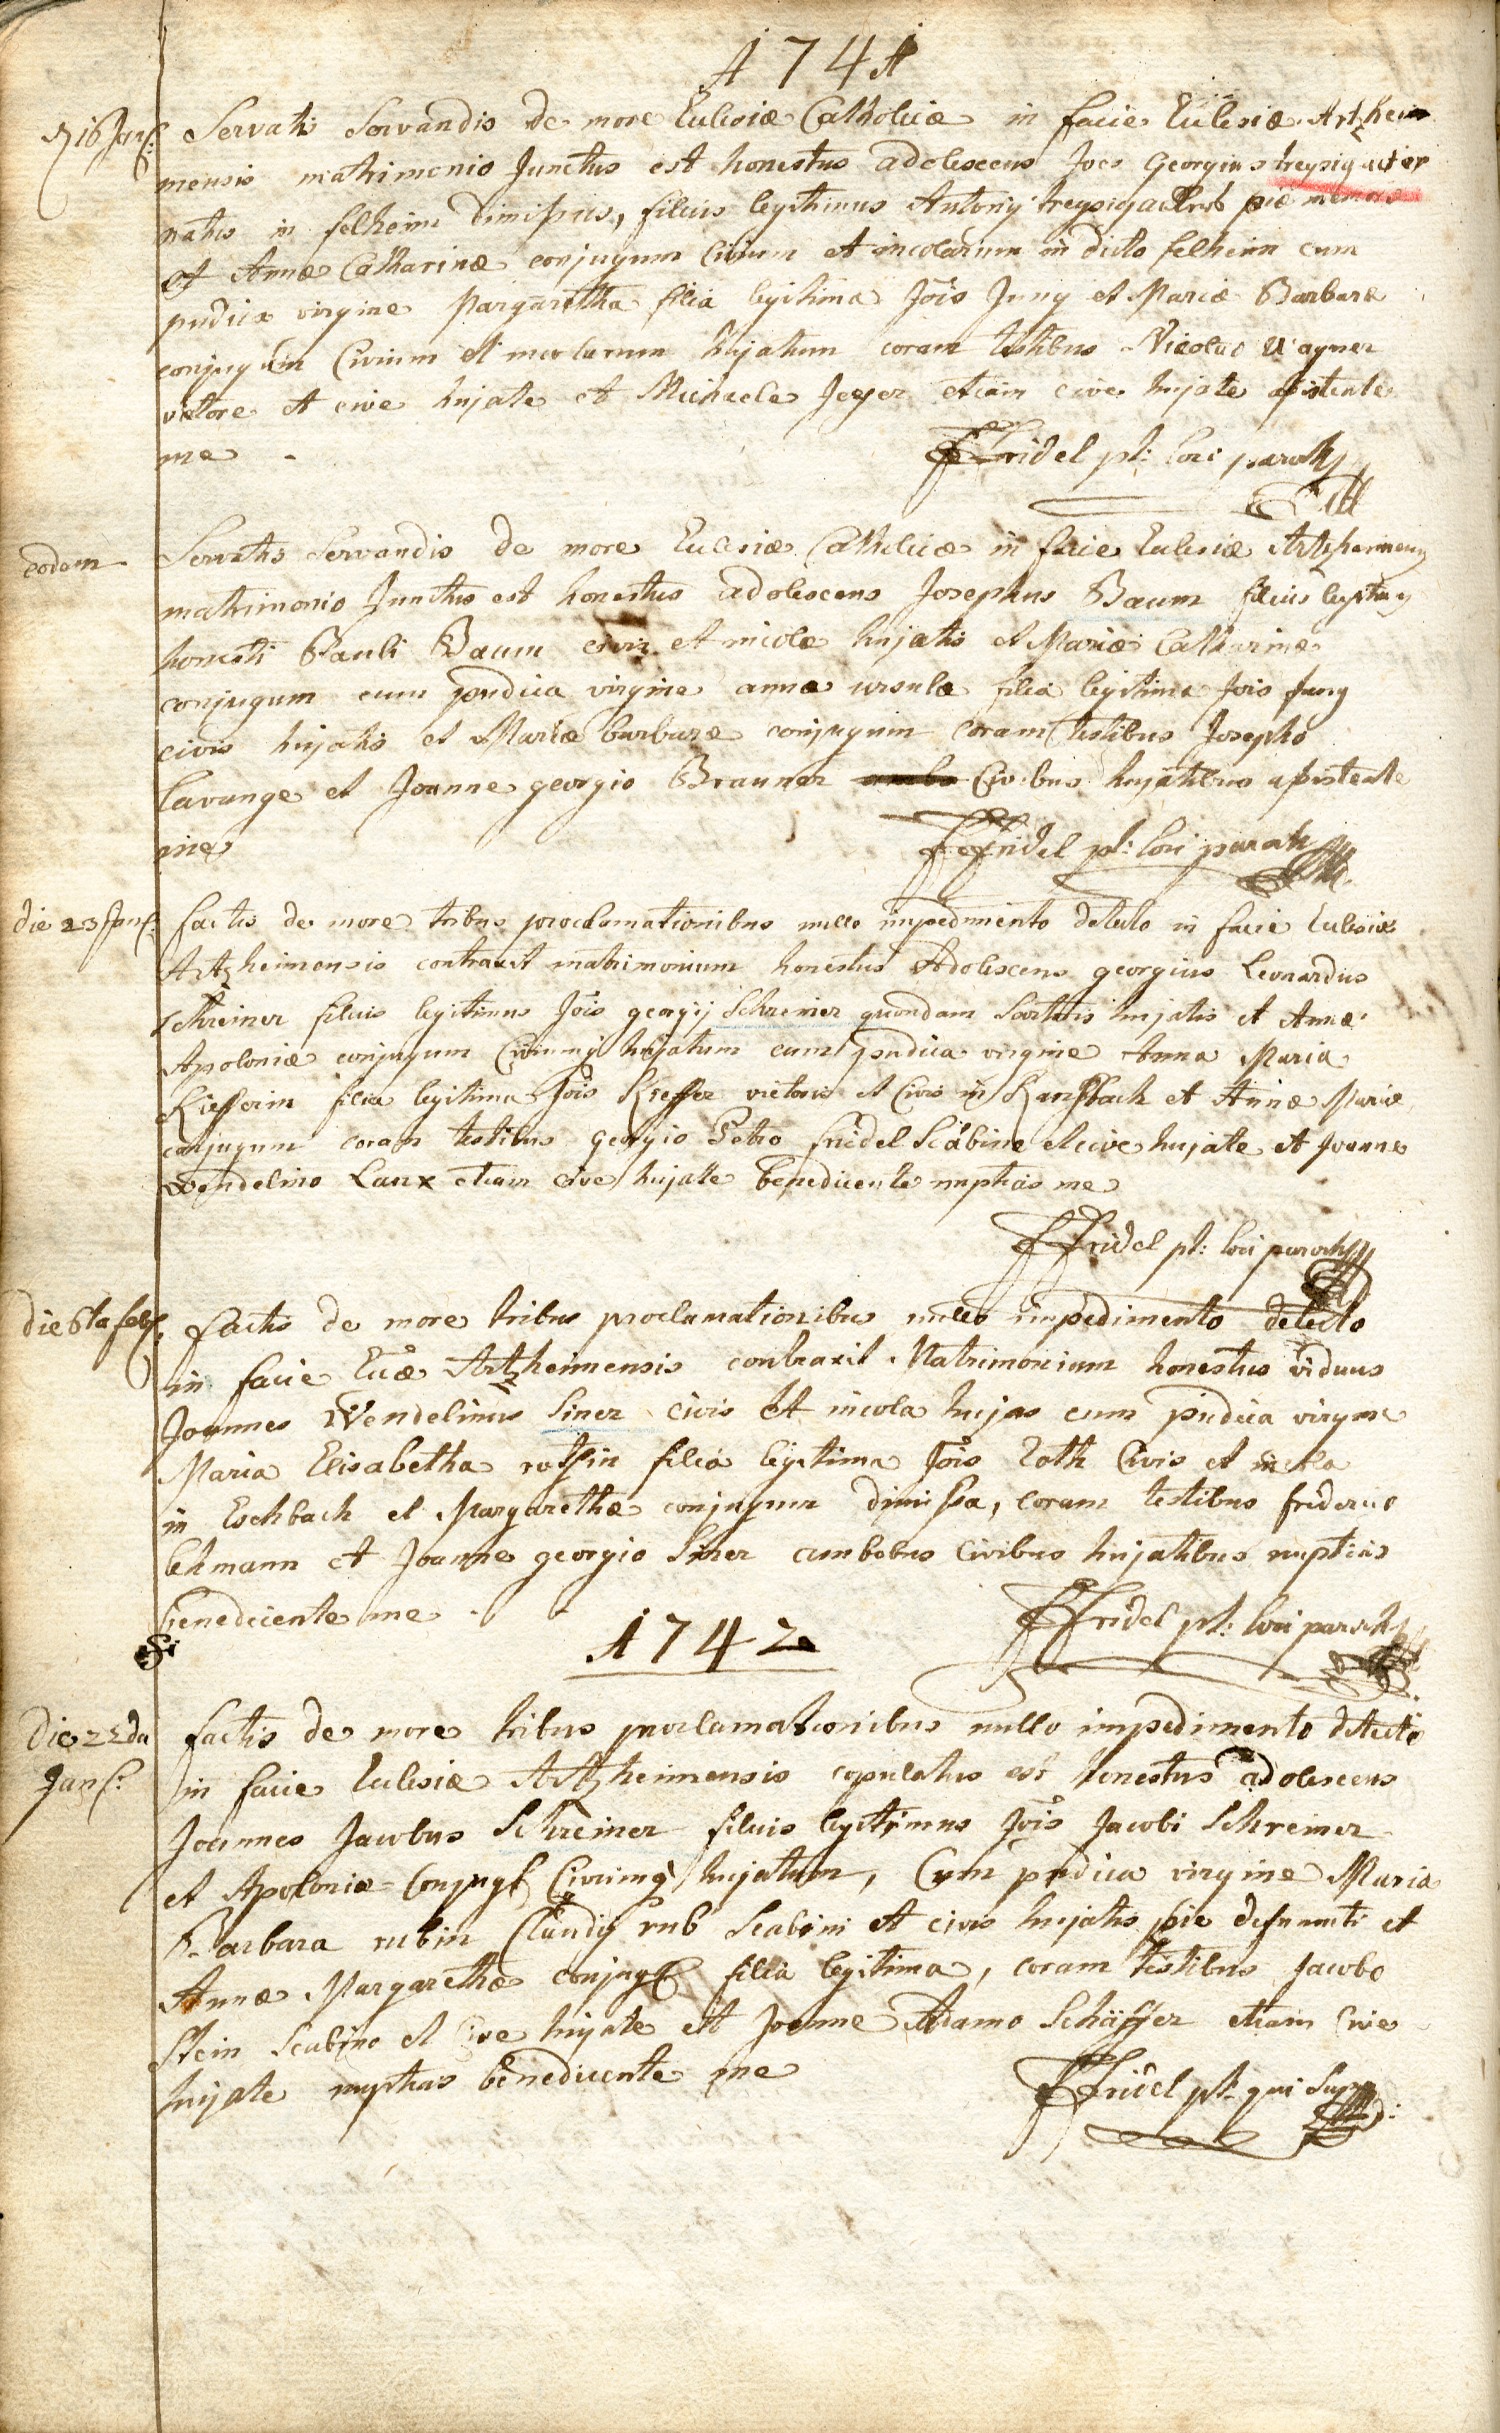 1741
16 Jan: Servatis Servandis de more Ecclesiæ Catholicæ in facie Ecclesiæ Artzheim
mensis matrimonio Junctus est honestus adolescens Joes Georgius treysigacker
natus in felheim dimissus, filius legitimus Antonij treysigacker piæ memoriæ
et Annæ Catharinæ conjugum Civium et incolarum in dicto felheim cum
pudica virgine Margaretha filia legitima Jois Jung et Mariæ Barbaræ
conjugum Civium et incolarum hujatum coram testibus Nicolao Wagner
vietore et cive hujate et Michaele Jeger etiam cive hujate assistente
me
FFridel pt: loci paroch
eodem Servatis Servandis de more Ecclesiæ Catholicæ in facie Ecclesiæ Artzhemensis
matrimonio Junctus est honestus adolescens Josephus Baum filius legitimus
honesti Pauli Baum civis et incolæ hujatis et Mariæ Catharinæ
conjugum cum pudica virgine annæ ursulæ filia legitima Jois Jung
civis hujatis et Mariæ barbaræ conjugum coram testibus Josepho
lavange et Joanne georgio Brauner Civibus hujatibus assistente
me
FFridel pt: loci paroch
die 23 Jan: factis de more tribus proclamationibus nullo impedimento detecto in facie Ecclesiæ
Artzheimensis contraxit matrimonium honestus Adolescens georgius Leonardus
schreiner filius legitimus Jois georgij Schreiner quondam Sartoris hujatis et Annæ
Apoloniæ conjugum Civiumq hujatum cum pudica virgine Anna Maria
Kiefferin filia legitima Jois Kieffer vietoris et Civis in Ranspach et Annæ Mariæ
conjugum coram testibus georgio Petro fridel Scabino et cive hujate et Joanne
Wendelino Lanx etiam cive hujate benedicente nuptias me
FFridel pt: loci paroch
die 6ta feb: factis de more tribus proclamationibus nullo impedimento detecto
in facie Eccæ Artzheimensis contraxit Matrimonium honestus viduus
Joannes Wendelinus Siner civis et incola hujas cum pudica virgine
Maria Elisabetha rothin filia legitima Jois Roth Civis et incola
in Eschbach et Margarethæ conjugum dimissa, coram testibus friderico
lehmann et Joanne georgio Siner ambobus civibus hujatibus nuptias
benedicente me
FFridel pt: loci paroch
1742
Die 22da
Jan: factis de more tribus proclamationibus nullo impedimento detecto
in facie Ecclesiæ Artzheimensis copulatus est honestus adolescens
Joannes Jacobus Schreiner filius legitimus Jois Jacobi Schreiner
et Apoloniæ Conjug Civiumq hujatum, Cum pudica virgine Maria
Barbara rubin Claudij rub Scabini et civis hujatis pie defuncti et
Annæ Margarethæ conjug filia legitima, coram testibus Jacobo
Stein Scabino et Cive hujate et Joanne Adamo Schäffer etiam Cive
hujate nuptias benedicente me
FFridel pt. qui Supra